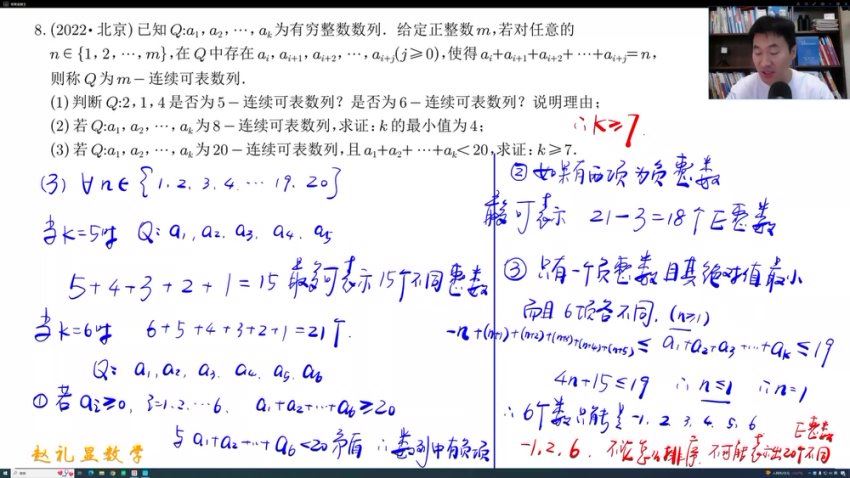 8. (2022•北京) 已知 Q:a₁, a₂, ⋯, aₖ为有穷整数数列. 给定正整数 m, 若对任意的
n∈{1, 2, ⋯, m}, 在 Q 中存在 aᵢ, aᵢ₊₁, aᵢ₊₂, ⋯, aᵢ₊ⱼ(j⩾0), 使得 aᵢ+aᵢ₊₁+aᵢ₊₂+⋯+aᵢ₊ⱼ=n,
则称 Q 为 m-连续可表数列.
(1) 判断 Q:2, 1, 4 是否为 5-连续可表数列? 是否为 6-连续可表数列? 说明理由;
(2) 若 Q:a₁, a₂, ⋯, aₖ为 8-连续可表数列, 求证: k 的最小值为 4;
(3) 若 Q:a₁, a₂, ⋯, aₖ为 20-连续可表数列, 且 a₁+a₂+⋯+aₖ<20, 求证: k⩾7.
∴K≥7.
(3) ∀n∈{1.2.3.4.⋯19.20}
当K=5时 Q: a₁, a₂. a₃. a₄. a₅
5+4+3+2+1=15 最多可表示15个不同整数
当K=6时 6+5+4+3+2+1=21个.
Q: a₁, a₂, a₃. a₄. a₅. a₆
① 若 aᵢ≥0, i=1.2.⋯6. a₁+a₂+⋯+a₆≥20
与 a₁+a₂+⋯+a₆<20矛盾 ∴数列中有负项
② 如果有两项为负整数
最多可表示 21-3=18个正整数
③ 只有一个负整数且其绝对值最小
而且6项各不同. (n≥1)
-n+(n+1)+(n+2)+(n+3)+(n+4)+(n+5)≤ a₁+a₂+a₃⋯+aₖ≤19
4n+15≤19 ∴n≤1 ∴n=1
∴6个数只能是-1, 2, 3, 4, 5, 6
-1, 2, 6. 不论怎么排序, 不可能表示出20个不同正整数
赵礼显数学